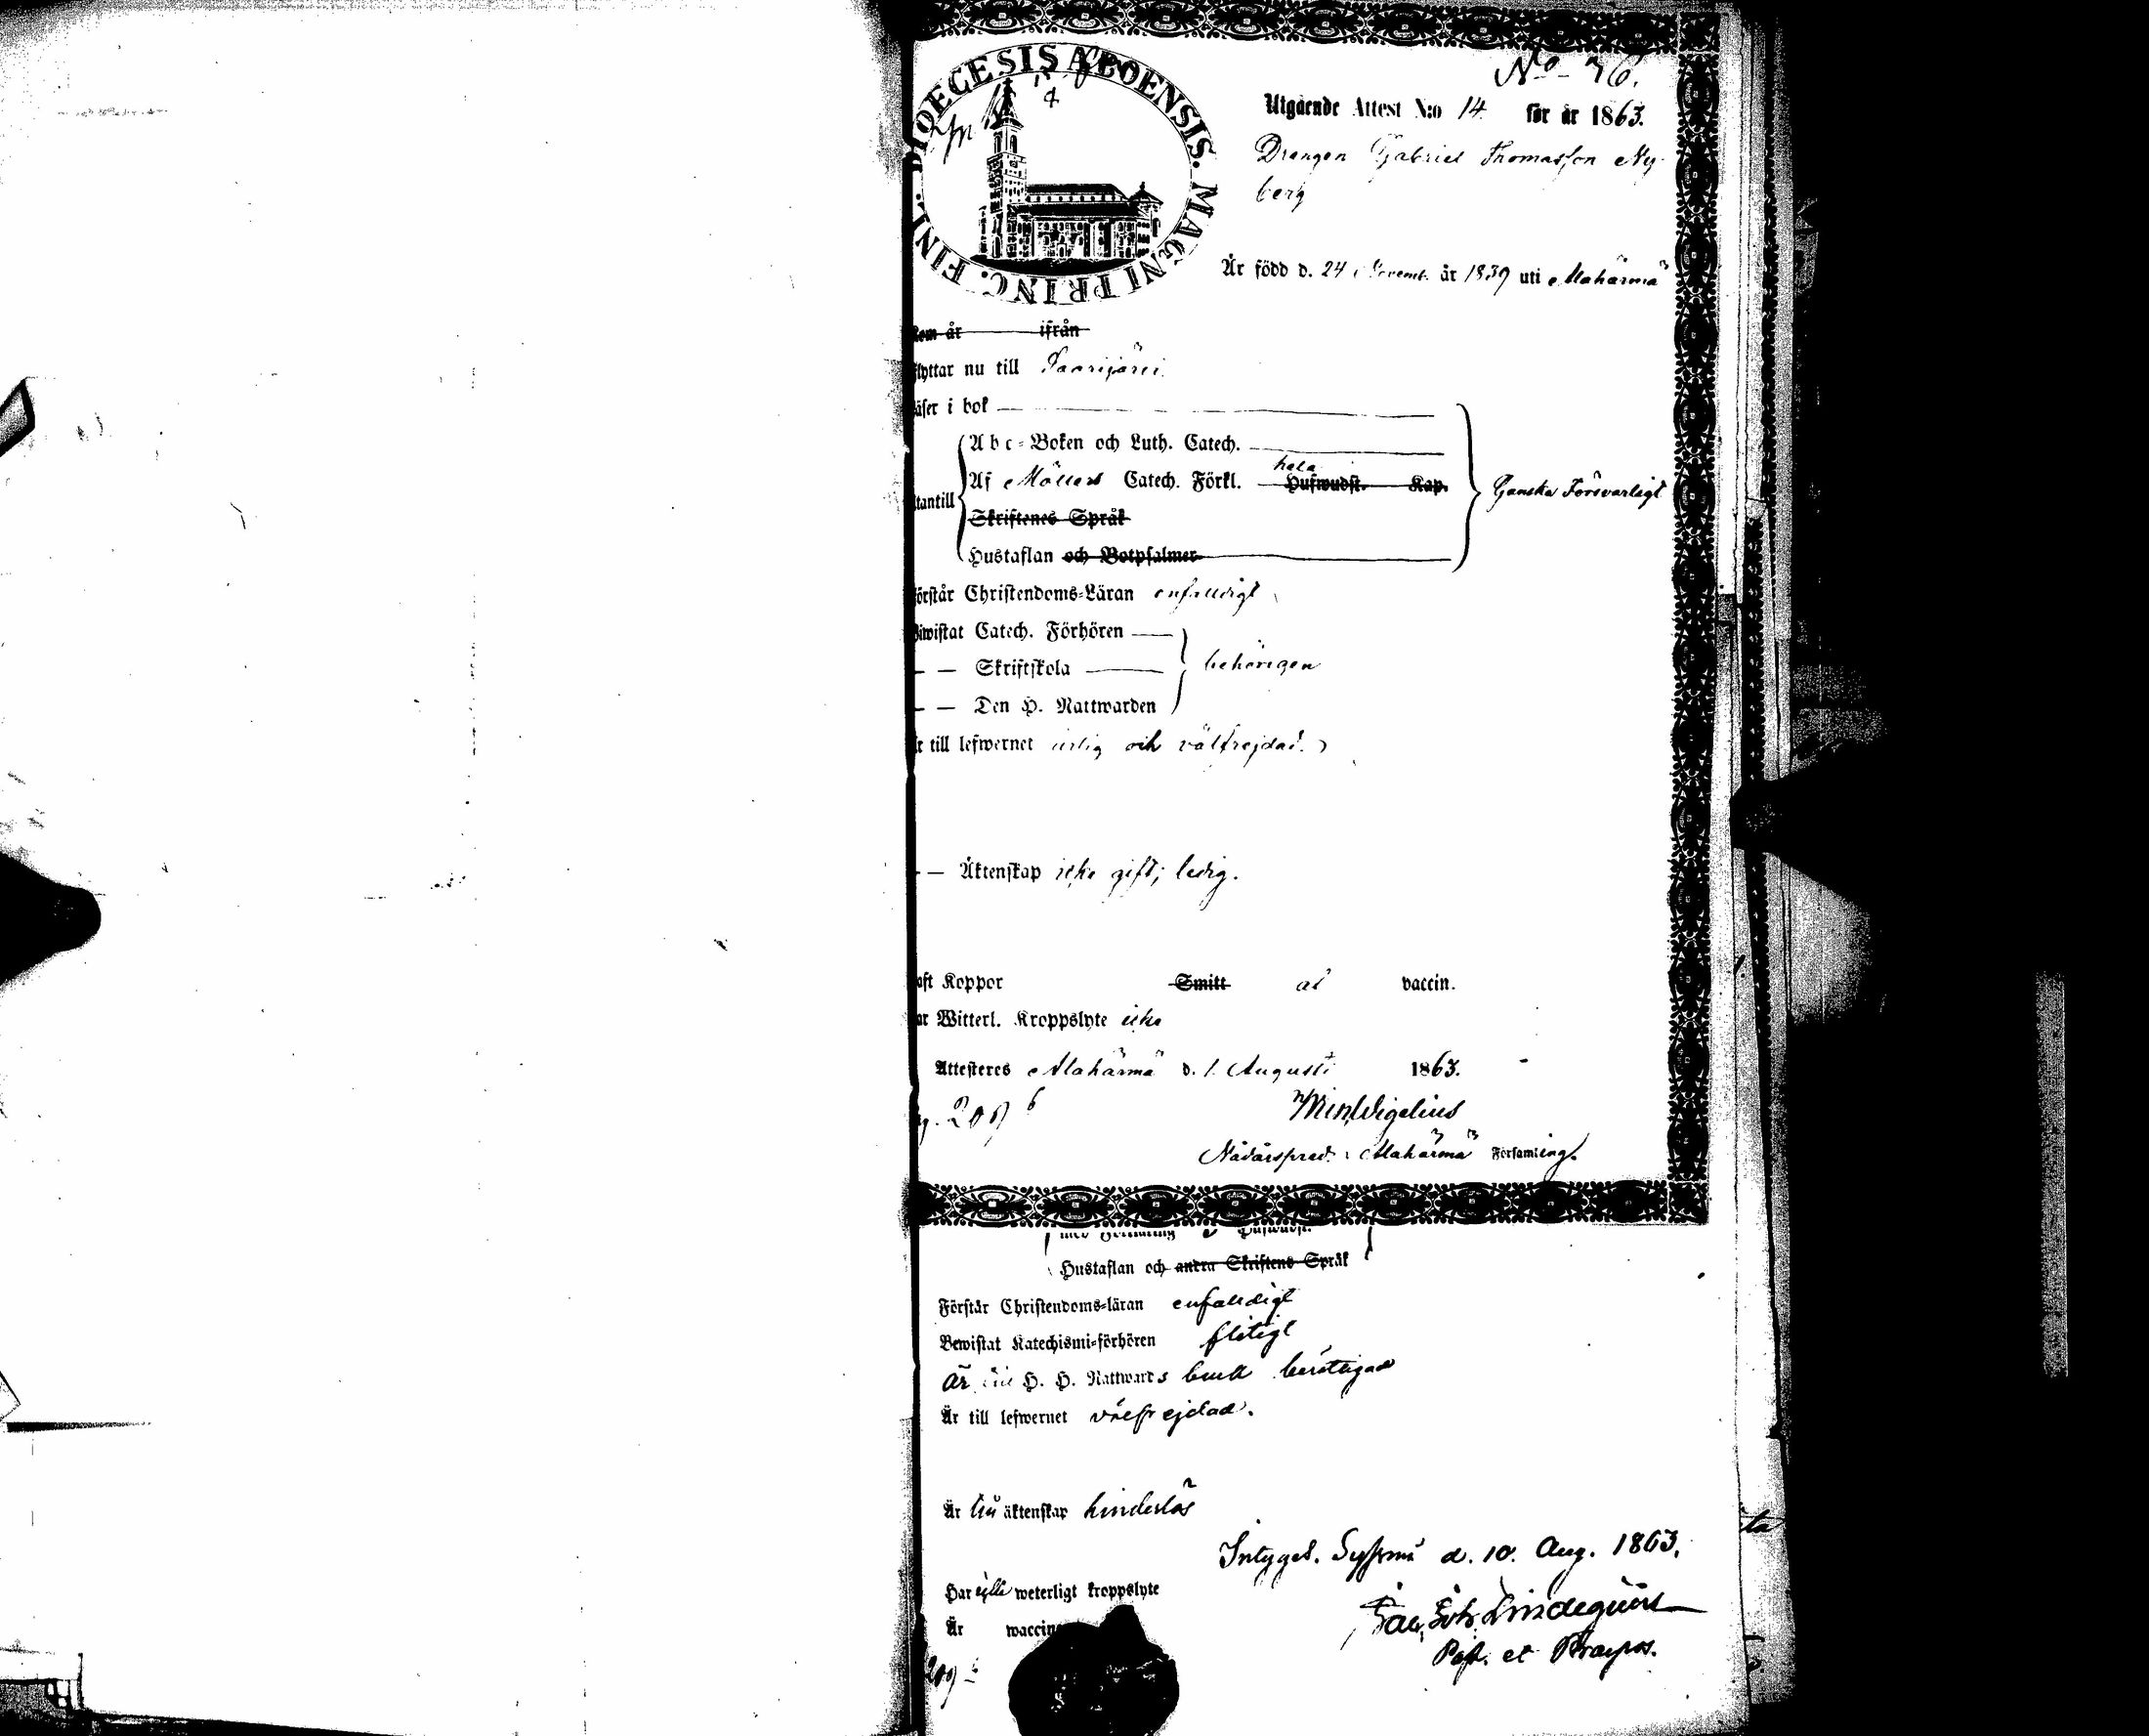 DIOECESIS ABOENSIS. MAGNI PRINC. FINL.
No 76.
Utgående Attest N:o 14 för år 1863.
Drengen Gabriel Thomasson Ny-
berg
Är född d. 24 Novemb. år 1839 uti Alahärmä
Kom år ifrån
flyttar nu till Saarijärvi
läser i bok
Abc-Boken och Luth. Catech.
hela
Af Möllers Catech. Förkl. Hufwudst. Kap.
utantill
Ganska Försvarligt
Skriftenes Språk
Hustaflan och Botpsalmer
förstår Christendoms-Läran enfaldigt
Biwistat Catech. Förhören
— — Skriftskola
behörigen
— — Den H. Nattwarden
Är till lefwernet ärlig och välfrejdad.
— — Äktenskap icke gift; ledig.
haft Koppor Smitt är vaccin.
Har Witterl. Kroppslyte icke
Attesteres Alahärmä d. 1 Augusti 1863.
pag. 209 b
Wigelius
Nådårspred. i Alahärmä Församling.
Hustaflan och andra Skriftens Språk
Förstår Christendoms-läran enfaldigt
Bewistat Katechismi-förhören flitigt
Är till H. H. Nattwards bruk berättigad
Är till lefwernet välfrejdad.
Är till äktenskap hinderlös
Intygas. Sysmä d. 10. Aug. 1863.
Har ej weterligt kroppslyte
Lindequist
Är waccin
Past. et Praepos.
209